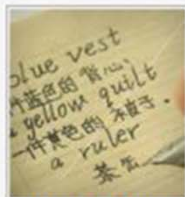 blue vest
件蓝色的 背
a yellow quilt
一件黄色的 被子.
a ruler